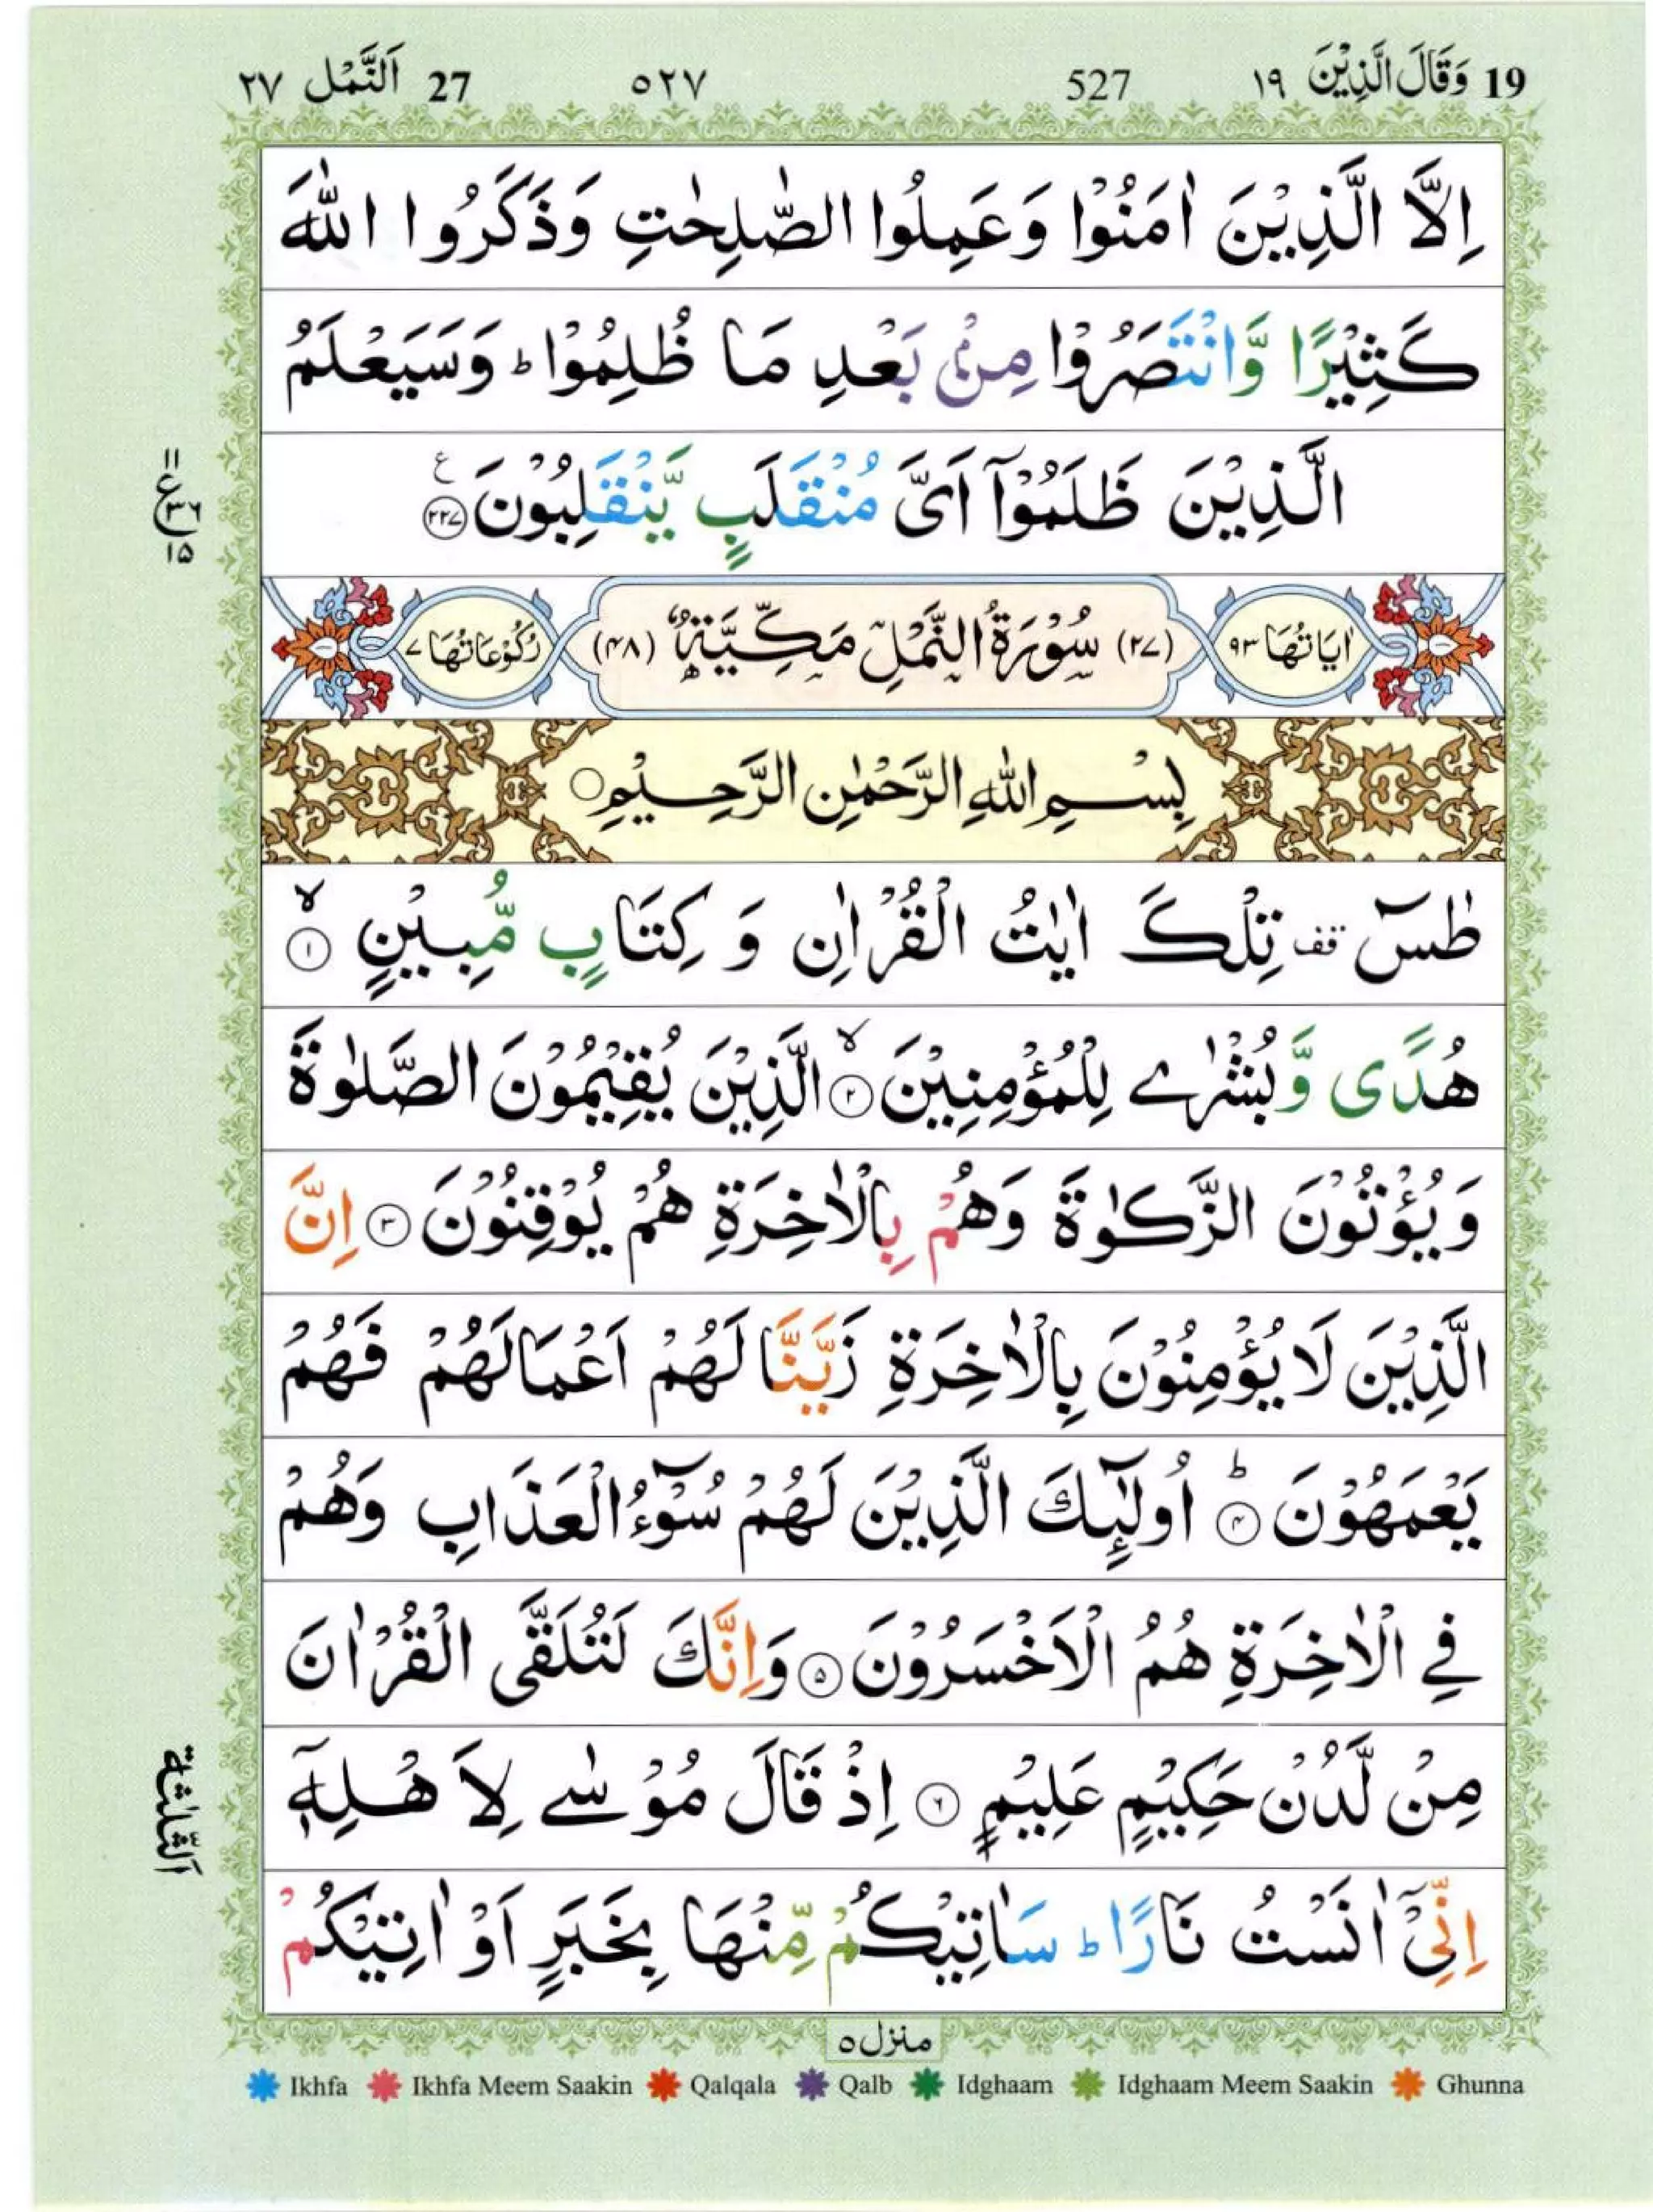 19 وَقَالَ الَّذِيْنَ ١٩ 527 ٥٢٧ 27 اَلنَّمْل ٢٧
اِلَّا الَّذِيْنَ اٰمَنُوْا وَعَمِلُوا الصّٰلِحٰتِ وَذَكَرُوا اللّٰهَ
كَثِيْرًا وَّانْتَصَرُوْا مِنْۢ بَعْدِ مَا ظُلِمُوْا ؕ وَسَيَعْلَمُ
الَّذِيْنَ ظَلَمُوْۤا اَىَّ مُنْقَلَبٍ يَّنْقَلِبُوْنَ ۲۲۷ ع
اٰيَاتُهَا ٩٣ (٢٧) سُوْرَةُ النَّمْلِ مَكِّيَّةٌ (٤٨) رُكُوْعَاتُهَا ٧
بِسْمِ اللّٰهِ الرَّحْمٰنِ الرَّحِيْمِ
طٰسٓ قف تِلْكَ اٰيٰتُ الْقُرْاٰنِ وَ كِتَابٍ مُّبِيْنٍ ۙ ١
هُدًى وَّبُشْرٰے لِلْمُؤْمِنِيْنَ ۙ ٢ الَّذِيْنَ يُقِيْمُوْنَ الصَّلٰوةَ
وَيُؤْتُوْنَ الزَّكٰوةَ وَهُمْ بِالْاٰخِرَةِ هُمْ يُوْقِنُوْنَ ٣ اِنَّ
الَّذِيْنَ لَا يُؤْمِنُوْنَ بِالْاٰخِرَةِ زَيَّنَّا لَهُمْ اَعْمَالَهُمْ فَهُمْ
يَعْمَهُوْنَ ؕ ٤ اُولٰٓئِكَ الَّذِيْنَ لَهُمْ سُوْٓءُ الْعَذَابِ وَهُمْ
فِے الْاٰخِرَةِ هُمُ الْاَخْسَرُوْنَ ٥ وَاِنَّكَ لَتُلَقَّى الْقُرْاٰنَ
مِنْ لَّدُنْ حَكِيْمٍ عَلِيْمٍ ٦ اِذْ قَالَ مُوْسٰے لِاَهْلِهٖۤ
اِنِّىْۤ اٰنَسْتُ نَارًا ؕ سَاٰتِيْكُمْ مِّنْهَا بِخَبَرٍ اَوْ اٰتِيْكُمْ
منزل ٥
Ikhfa Ikhfa Meem Saakin Qalqala Qalb Idghaam Idghaam Meem Saakin Ghunna
١١ ع ٣٦ ١٥
اَلثّلٰثة